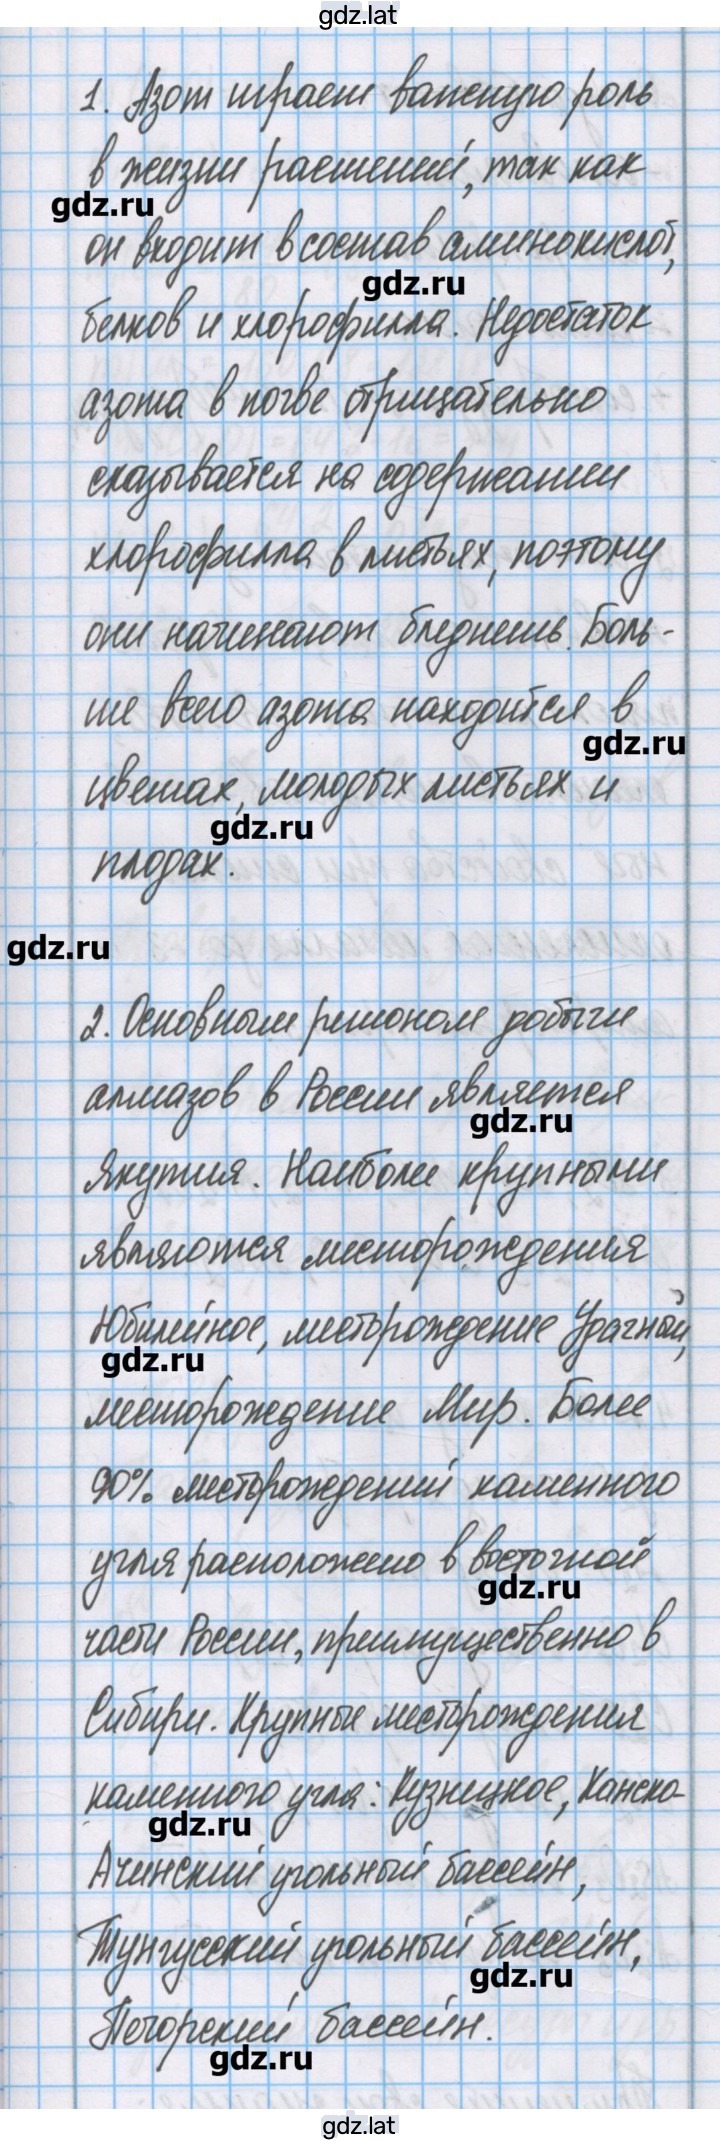 gdz.lat
1. Азот играет важную роль
в жизни растений, так как
gdz.ru
он входит в состав аминокислот,
gdz.ru
белков и хлорофилла. Недостаток
азота в почве отрицательно
сказывается на содержании
хлорофилла в листьях, поэтому
они начинают бледнеть. Боль-
ше всего азота находится в
gdz.ru
цветах, молодых листьях и
gdz.ru
плодах.
gdz.ru
2. Основным регионом добычи
алмазов в России является
gdz.ru
Якутия. Наиболее крупными
являются месторождения
Юбилейное, месторождение Удачный,
gdz.ru
месторождение Мир. Более
90% месторождений каменного
угля расположено в восточной
gdz.ru
части России, преимущественно в
Сибири. Крупные месторождения
каменного угля: Кузнецкое, Канско-
gdz.ru
Ачинский угольный бассейн,
Тунгусский угольный бассейн,
gdz.ru
Печорский бассейн.
gdz.ru
gdz.lat